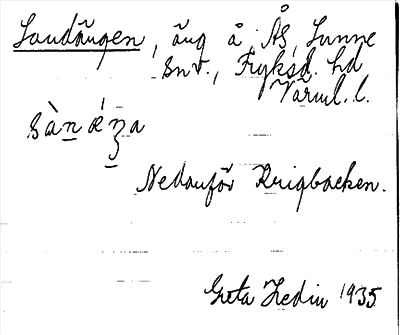 Landängen, äng å Ås, Sunne
snr., Fryksd. hd
Värml. l.
Nedanför Krigbacken.
Greta Hedin 1935